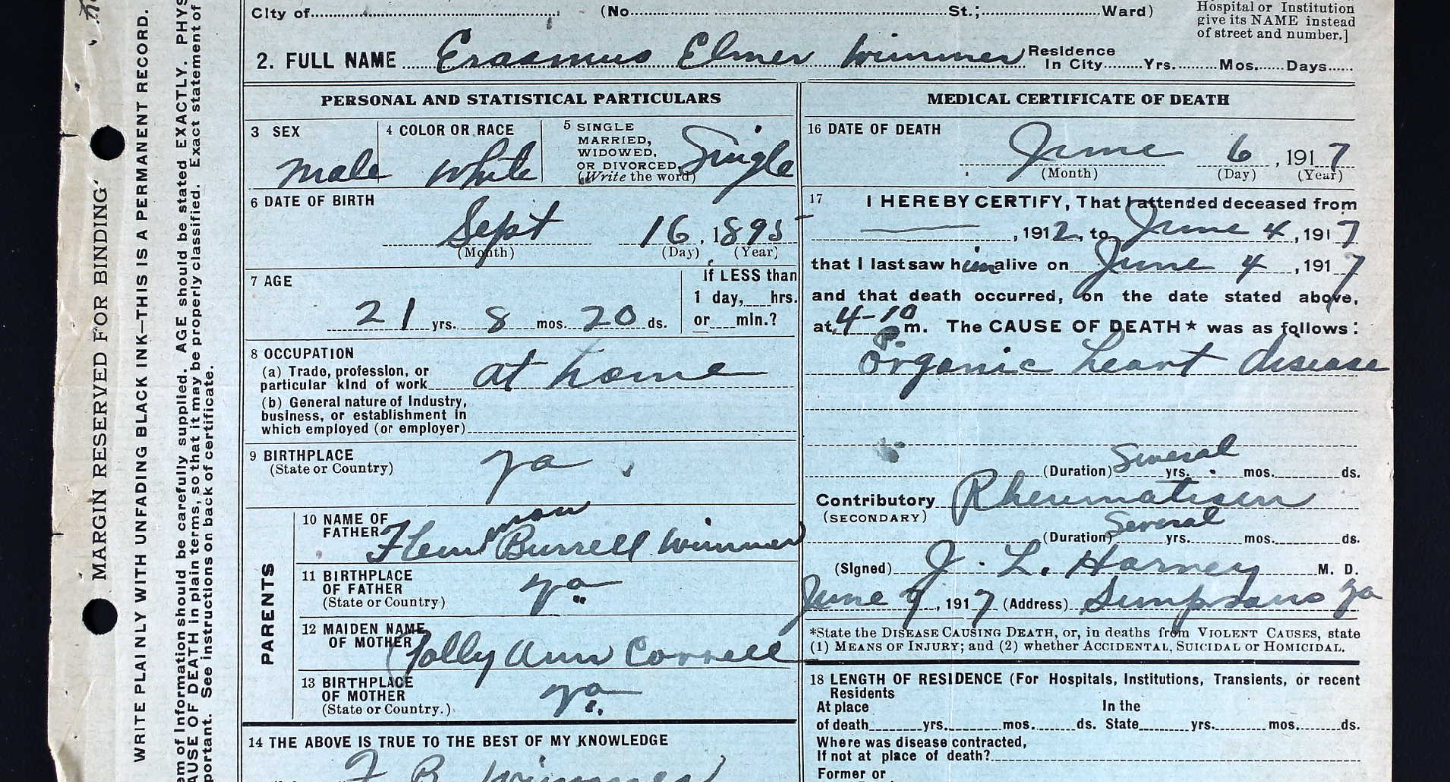 City of (No St.; Ward)
Hospital or Institution
give its NAME instead
of street and number.]
2. FULL NAME Erasmus Elmer Wimmer Residence
In City Yrs. Mos. Days
MARGIN RESERVED FOR BINDING
WRITE PLAINLY WITH UNFADING BLACK INK—THIS IS A PERMANENT RECORD.
em of Information should be carefully supplied. AGE should be stated EXACTLY. PHYS
AUSE OF DEATH in plain terms, so that it may be properly classified. Exact statement of
portant. See instructions on back of certificate.
PERSONAL AND STATISTICAL PARTICULARS
3 SEX
male
4 COLOR OR RACE
white
5 SINGLE
MARRIED,
WIDOWED,
OR DIVORCED
(Write the word)
Single
6 DATE OF BIRTH
Sept 16, 1895
(Month) (Day) (Year)
7 AGE
21 yrs. 8 mos. 20 ds.
If LESS than
1 day, hrs.
or min.?
8 OCCUPATION
(a) Trade, profession, or
particular kind of work at home
(b) General nature of Industry,
business, or establishment in
which employed (or employer)
9 BIRTHPLACE
(State or Country)
Va
PARENTS
10 NAME OF
FATHER
Burrell Wimmer
11 BIRTHPLACE
OF FATHER
(State or Country)
Va
12 MAIDEN NAME
OF MOTHER
Ann
13 BIRTHPLACE
OF MOTHER
(State or Country.)
Va.
14 THE ABOVE IS TRUE TO THE BEST OF MY KNOWLEDGE
F B Wimmer
MEDICAL CERTIFICATE OF DEATH
16 DATE OF DEATH
June 6, 1917
(Month) (Day) (Year)
17 I HEREBY CERTIFY, That I attended deceased from
, 1912, to June 4, 1917
that I last saw him alive on June 4, 1917
and that death occurred, on the date stated above,
at 4-10 P m. The CAUSE OF DEATH* was as follows:
Organic heart disease
(Duration) Several yrs. mos. ds.
Contributory Rheumatism
(SECONDARY)
(Duration) Several yrs. mos. ds.
(Signed) J. L. Harney M. D.
June 7, 1917 (Address) Simpsons Va
*State the DISEASE CAUSING DEATH, or, in deaths from VIOLENT CAUSES, state
(1) MEANS OF INJURY; and (2) whether ACCIDENTAL, SUICIDAL or HOMICIDAL.
18 LENGTH OF RESIDENCE (For Hospitals, Institutions, Transients, or recent
Residents
At place In the
of death yrs. mos. ds. State yrs. mos. ds.
Where was disease contracted,
If not at place of death?
Former or